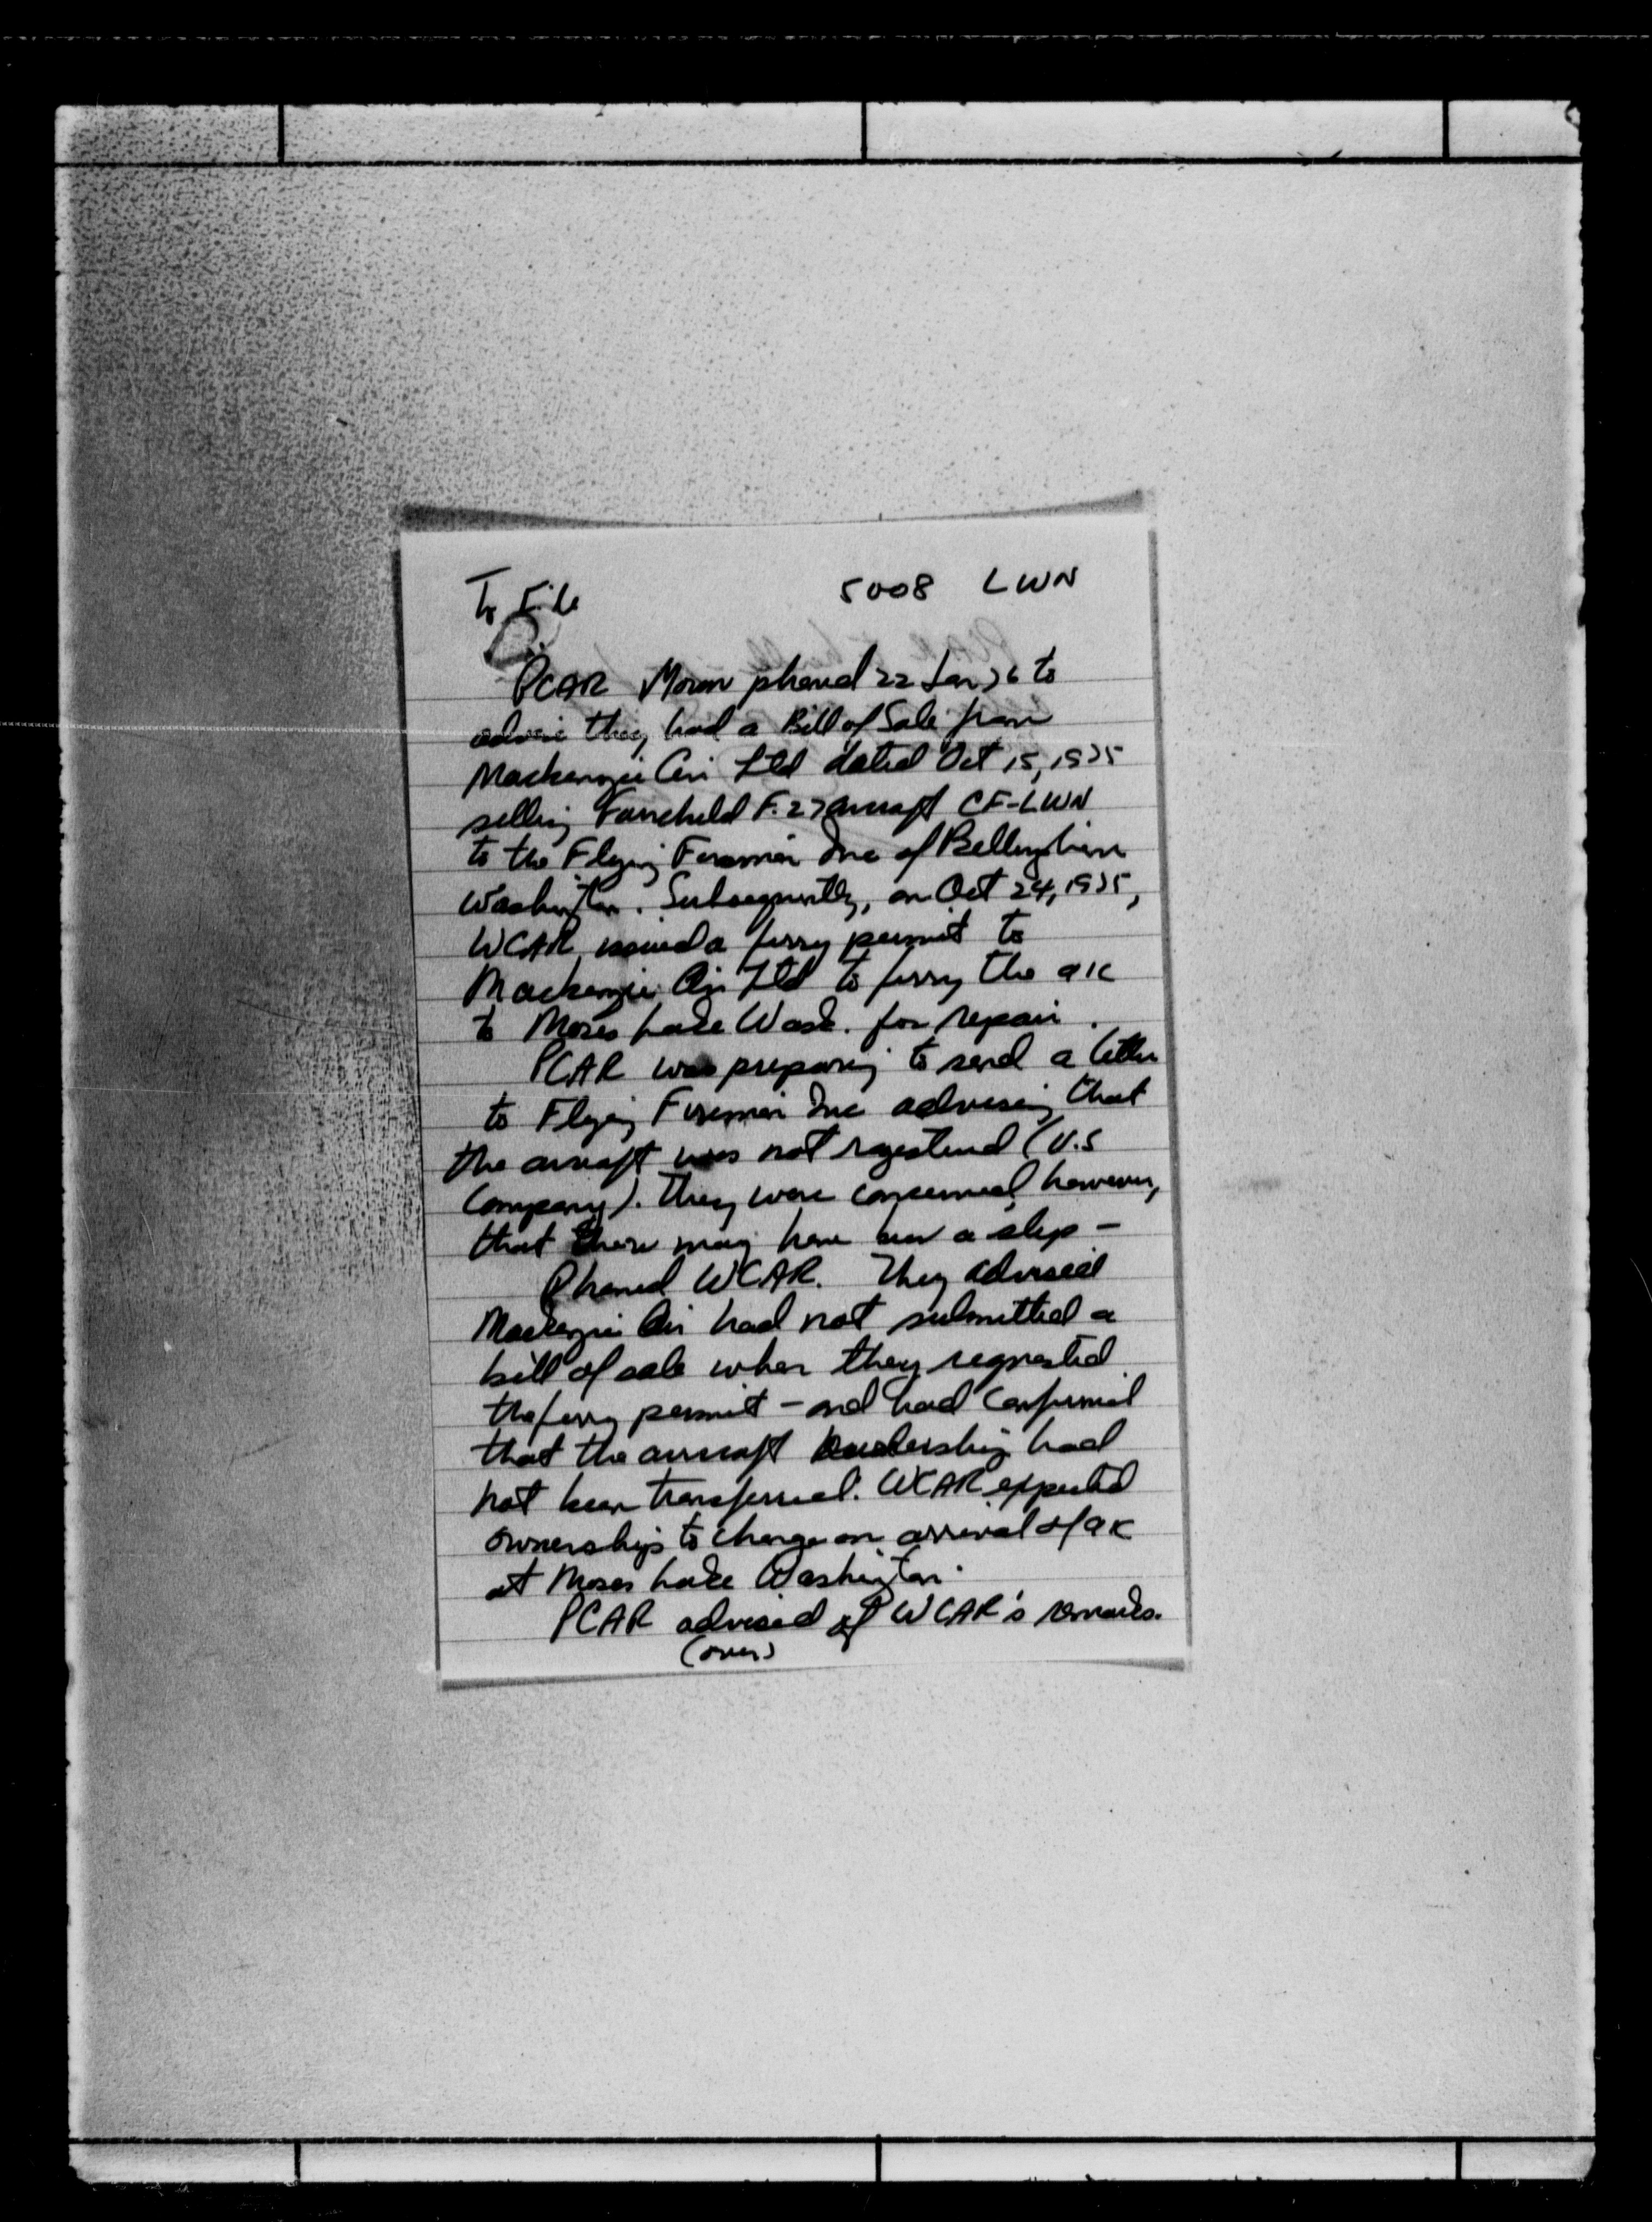 To File 5008 LWN
PCAR Moron phoned 22 Jan 76 to
advise they had a Bill of Sale from
Mackenzie Air Ltd dated Oct 15, 1975
selling Fairchild F.27 aircraft CF-LWN
to the Flying Firemen Inc of Bellingham
Washington. Subsequently, on Oct 24, 1975,
WCAR issued a ferry permit to
Mackenzie Air Ltd to ferry the a/c
to Moses Lake Wash. for repair.
PCAR was preparing to send a letter
to Flying Firemen Inc advising that
the aircraft was not registered (U.S
Company). They were concerned, however,
that there may have been a slip -
Phoned WCAR. They advised
Mackenzie Air had not submitted a
bill of sale when they requested
the ferry permit - and had confirmed
that the aircraft ownership had
not been transferred. WCAR expected
ownership to change on arrival of a/c
at Moses Lake Washington.
PCAR advised of WCAR's remarks.
(over)